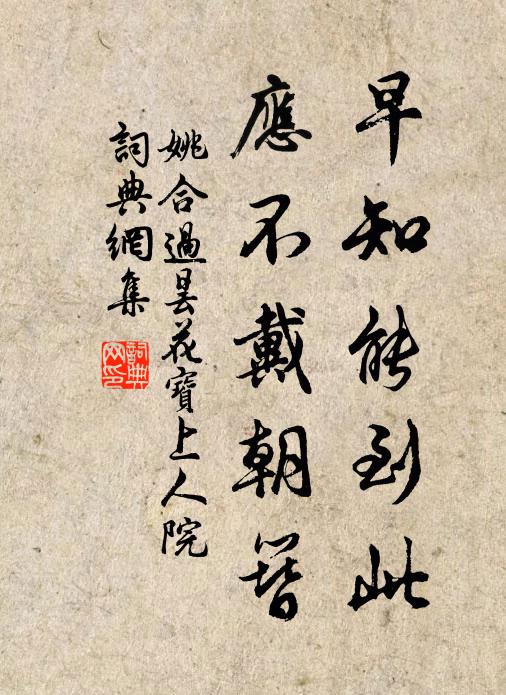 早知能到此
應不戴朝簪
姚合過曇花寶上人院
詞典網集
詞典網印